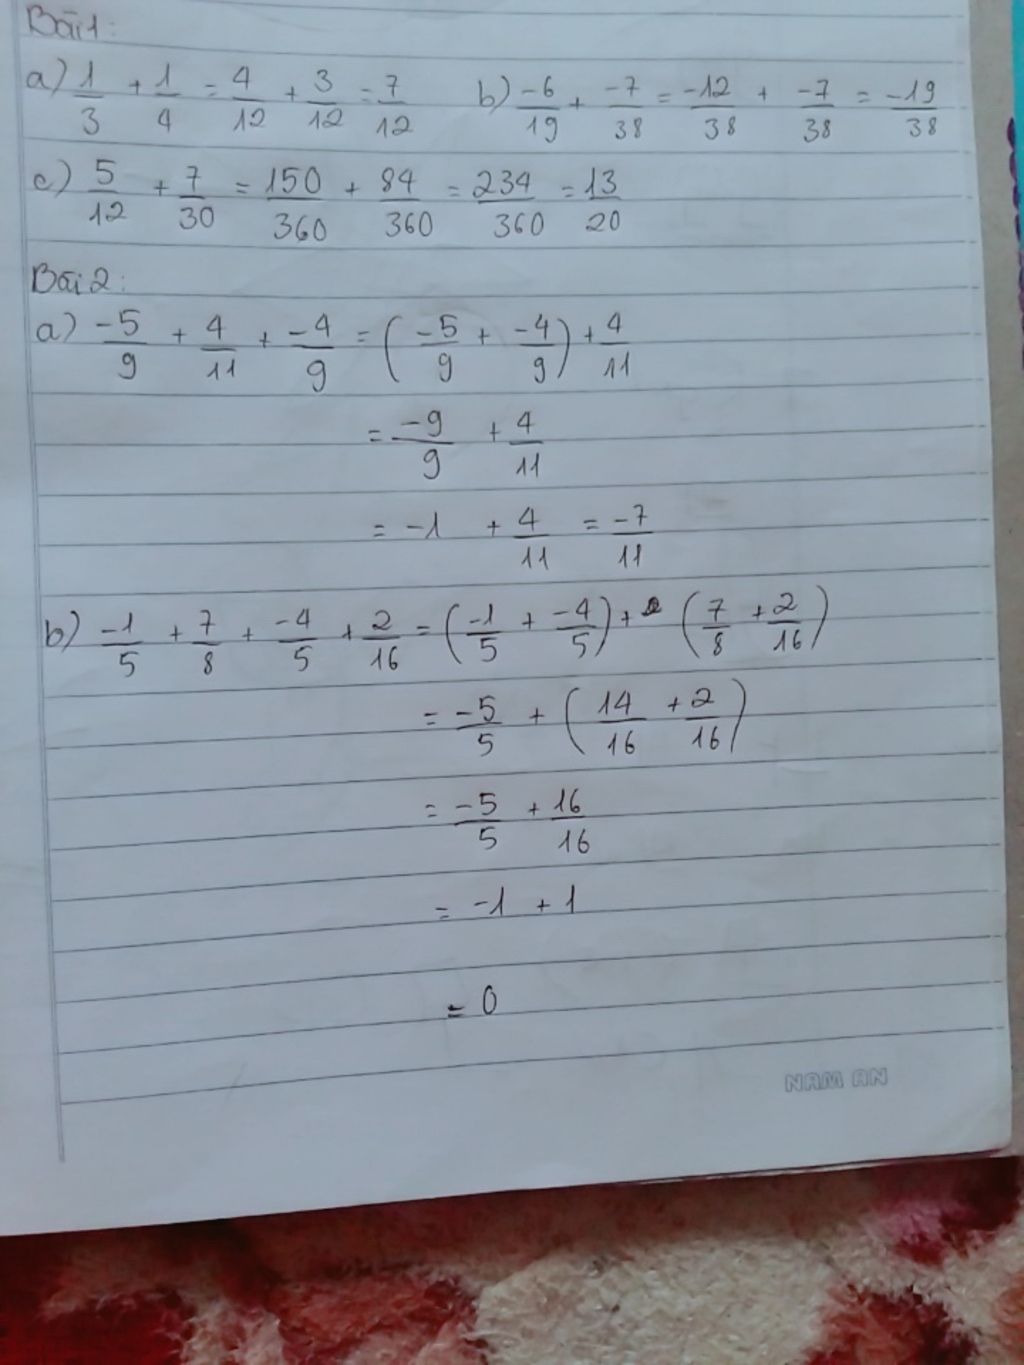 Bài 1:
a) 1/3 + 1/4 = 4/12 + 3/12 = 7/12 b) -6/19 + -7/38 = -12/38 + -7/38 = -19/38
c) 5/12 + 7/30 = 150/360 + 84/360 = 234/360 = 13/20
Bài 2:
a) -5/9 + 4/11 + -4/9 = (-5/9 + -4/9) + 4/11
= -9/9 + 4/11
= -1 + 4/11 = -7/11
b) -1/5 + 7/8 + -4/5 + 2/16 = (-1/5 + -4/5) + (7/8 + 2/16)
= -5/5 + (14/16 + 2/16)
= -5/5 + 16/16
= -1 + 1
= 0
NAM AN